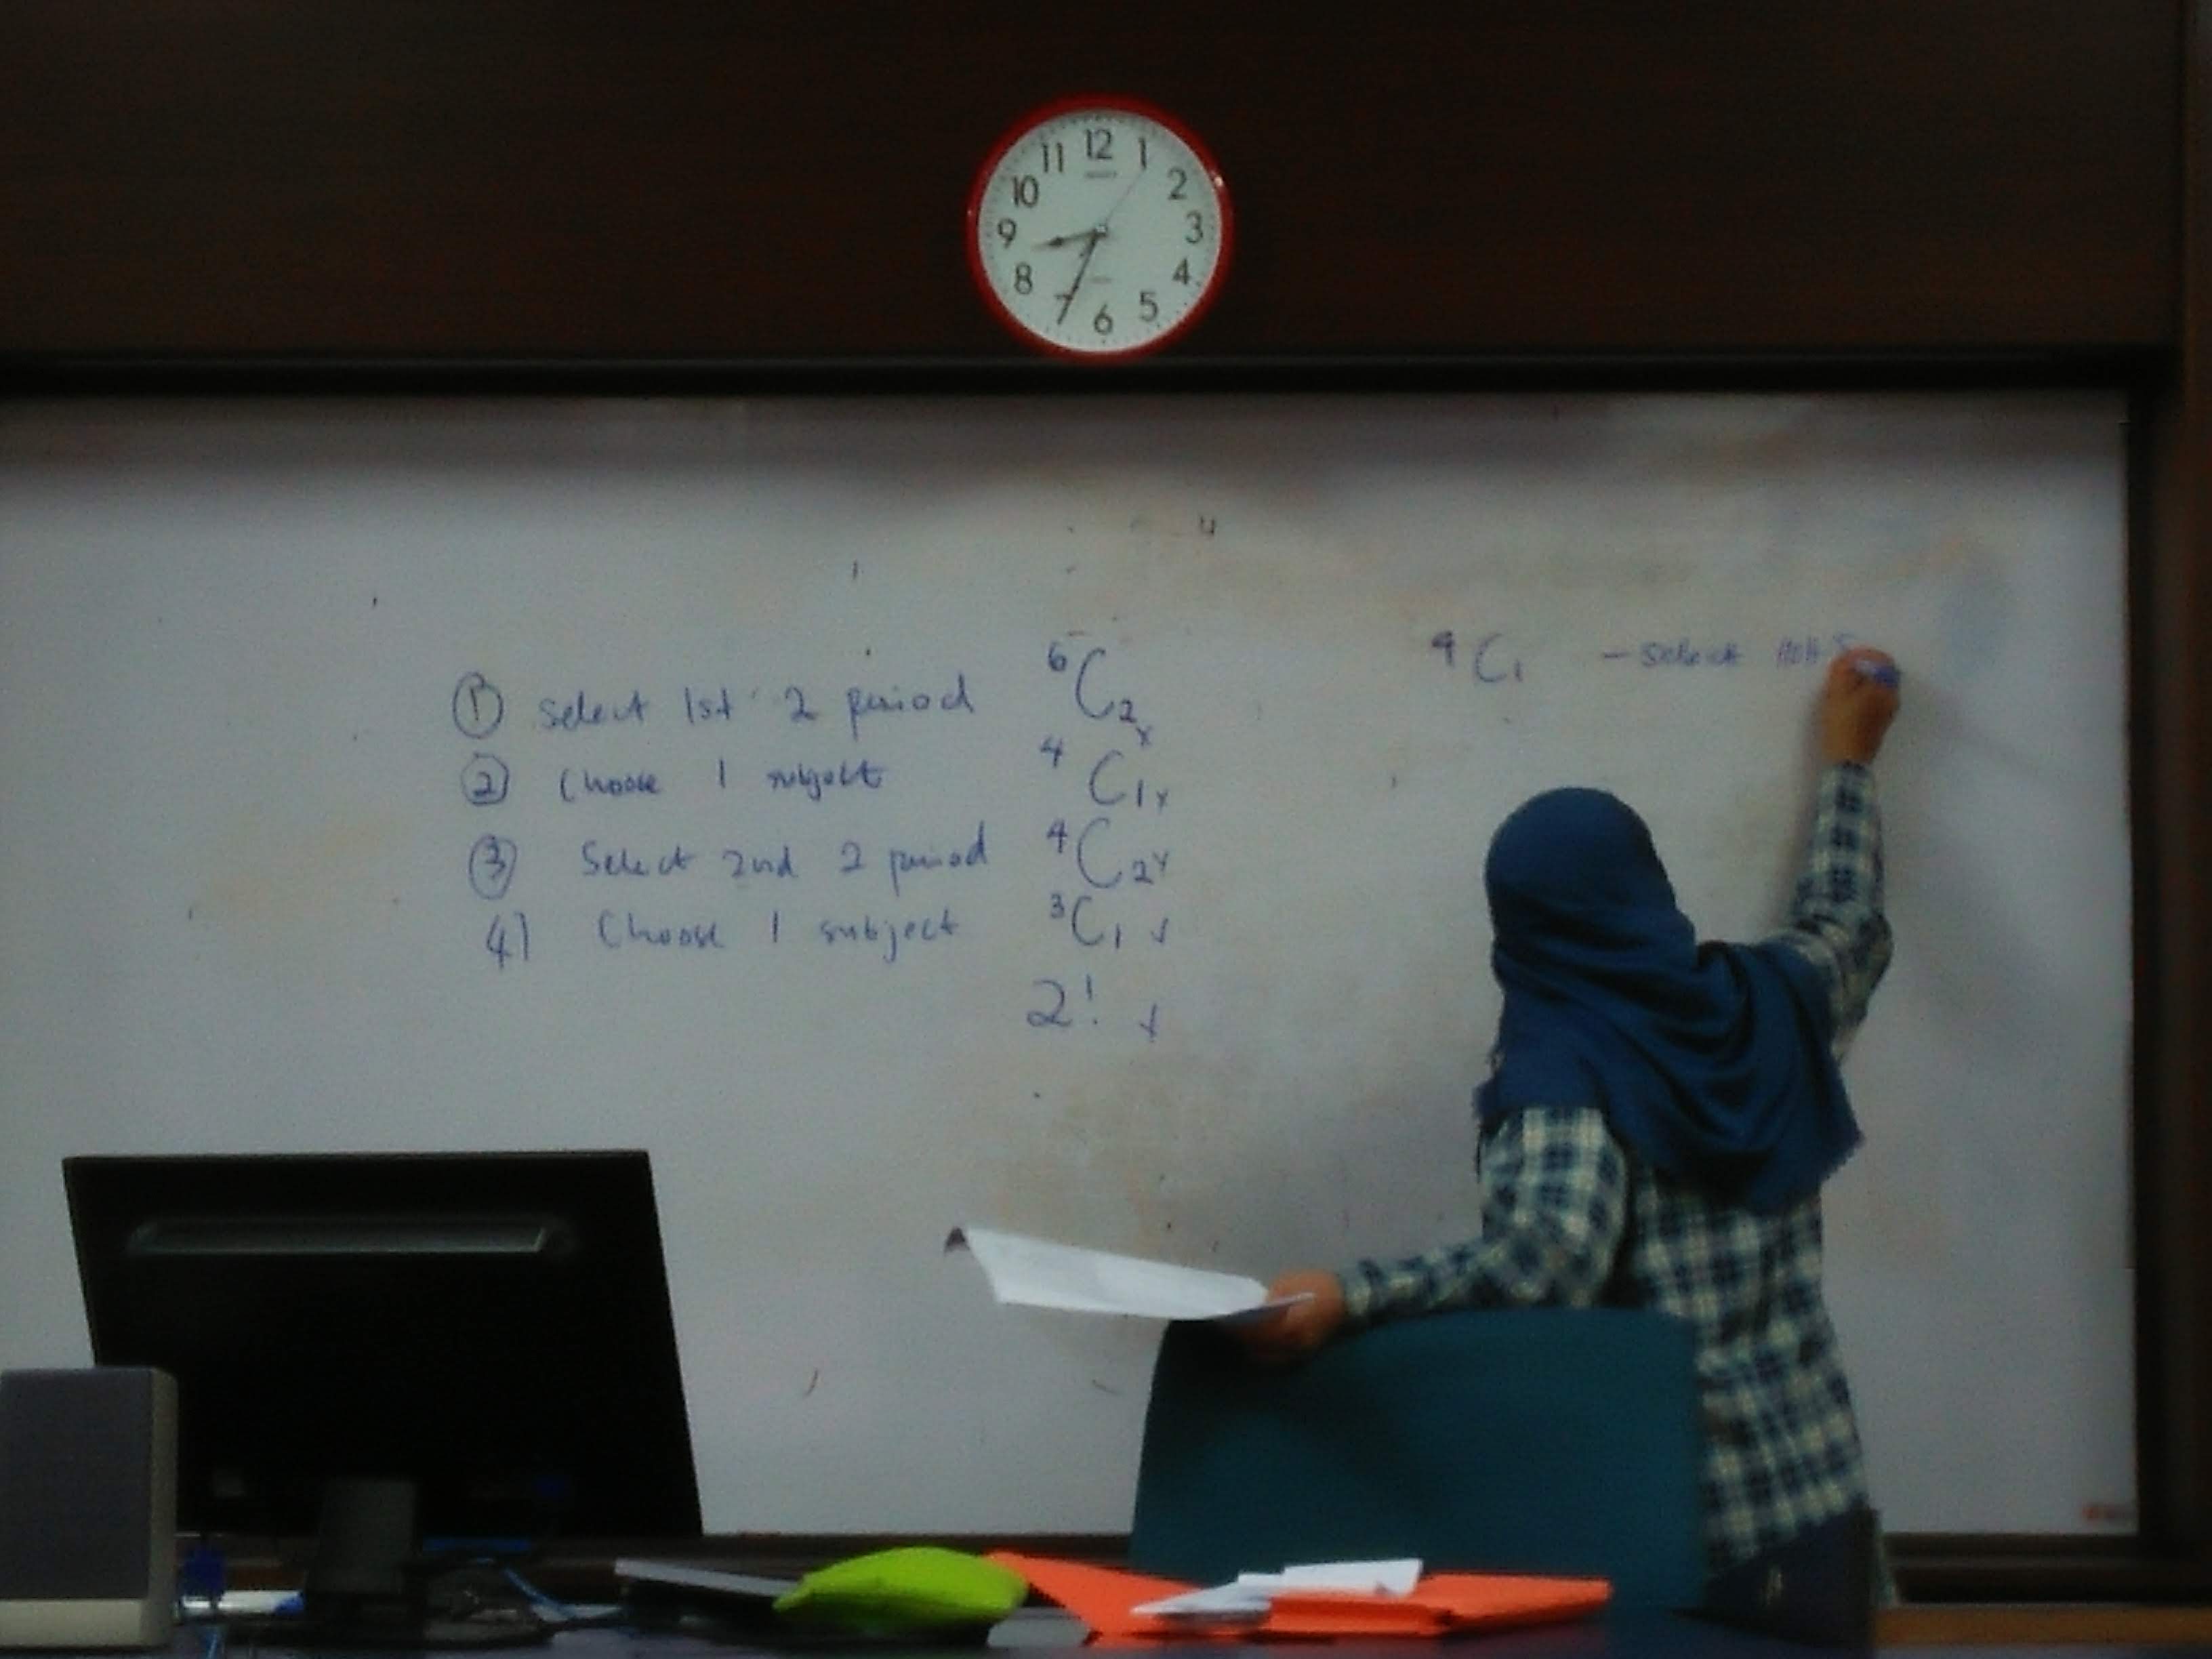 12
1
2
3
4
5
6
7
8
9
10
11
① select 1st 2 period ⁶C₂ x
② Choose 1 subject ⁴C₁ x
③ Select 2nd 2 period ⁴C₂ x
4) Choose 1 subject ³C₁ x
2! x
⁴C₁ – select